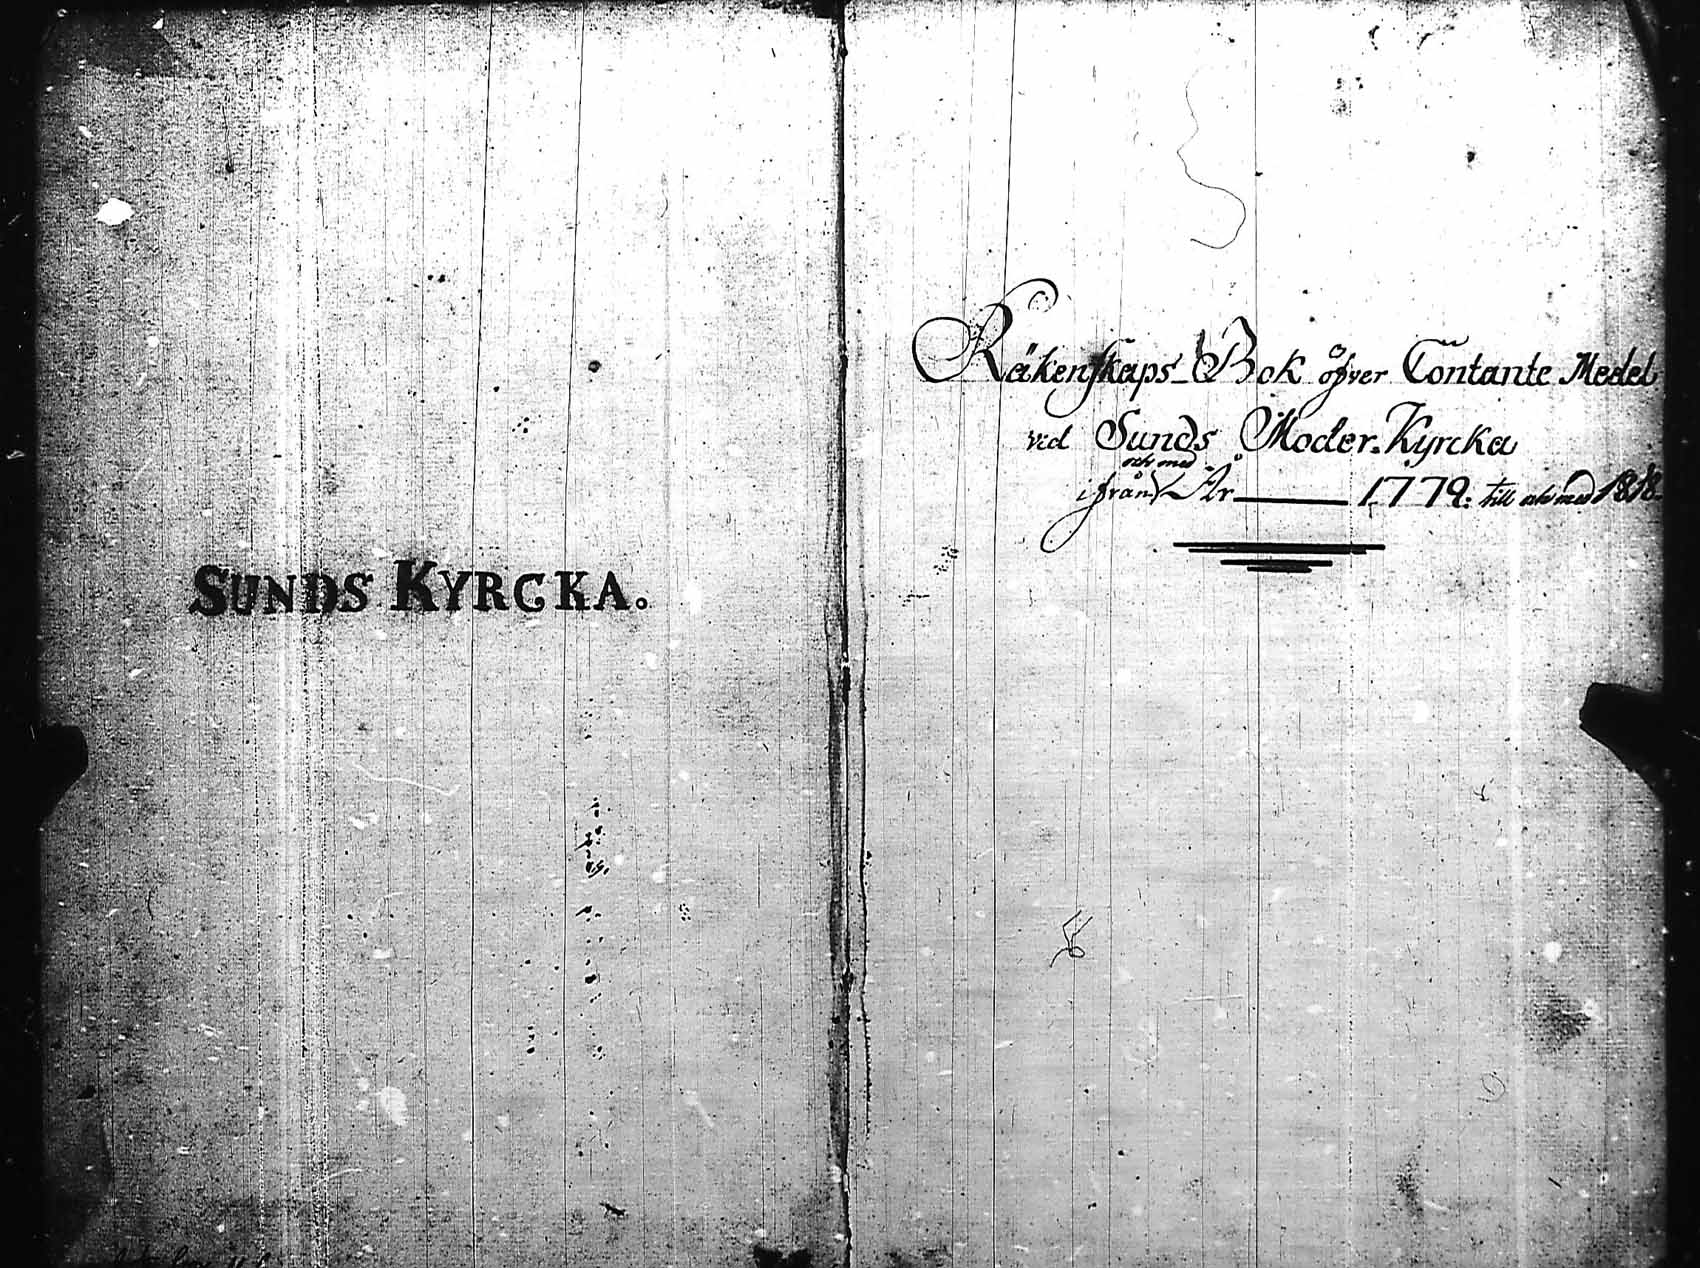 SUNDS KYRCKA.
Räkenskaps-Bok öfver Contante Medel
vid Sunds Moder-Kyrcka
och med
ifrån År 1779: till och med 1818.